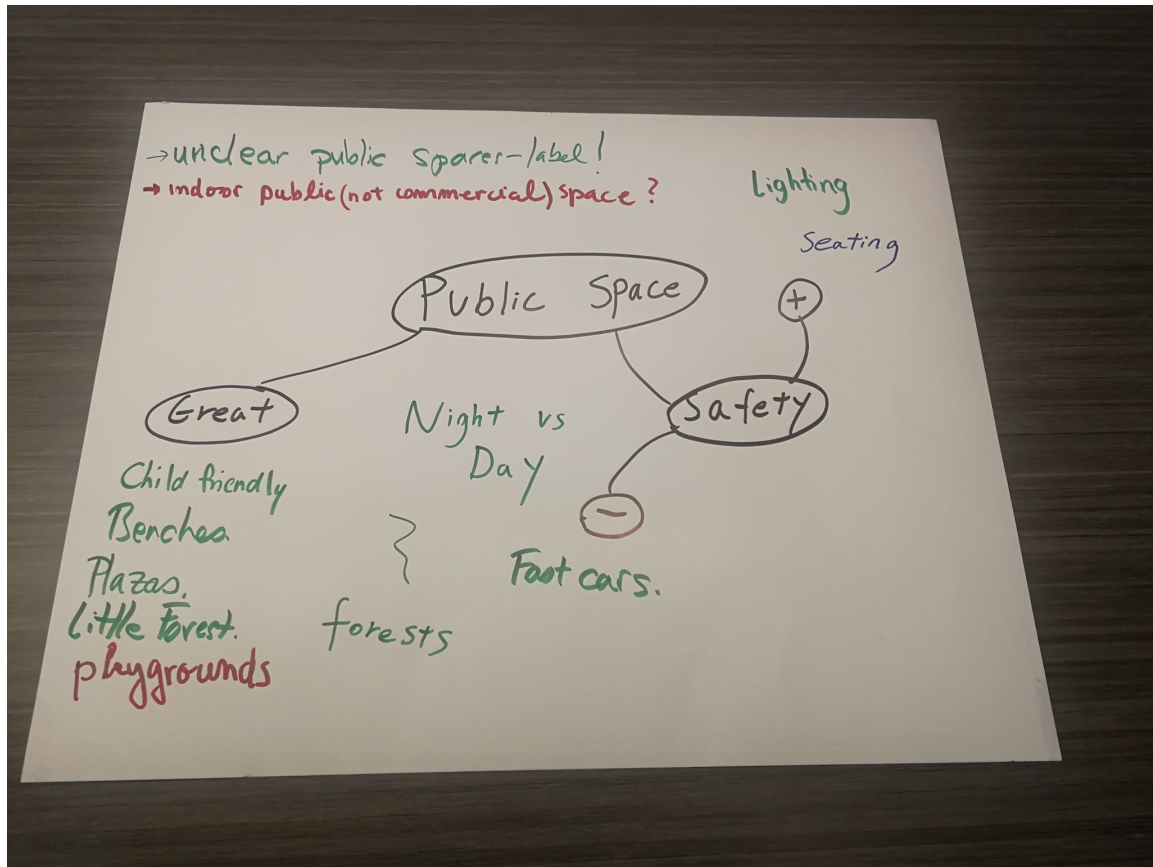 → unclear public spaces - label!
→ indoor public (not commercial) space?
Lighting
Seating
Public Space
+
Great
Safety
Night vs
Day
Child friendly
Benches.
Plazas.
Little Forest.
playgrounds
forests
−
Fast cars.